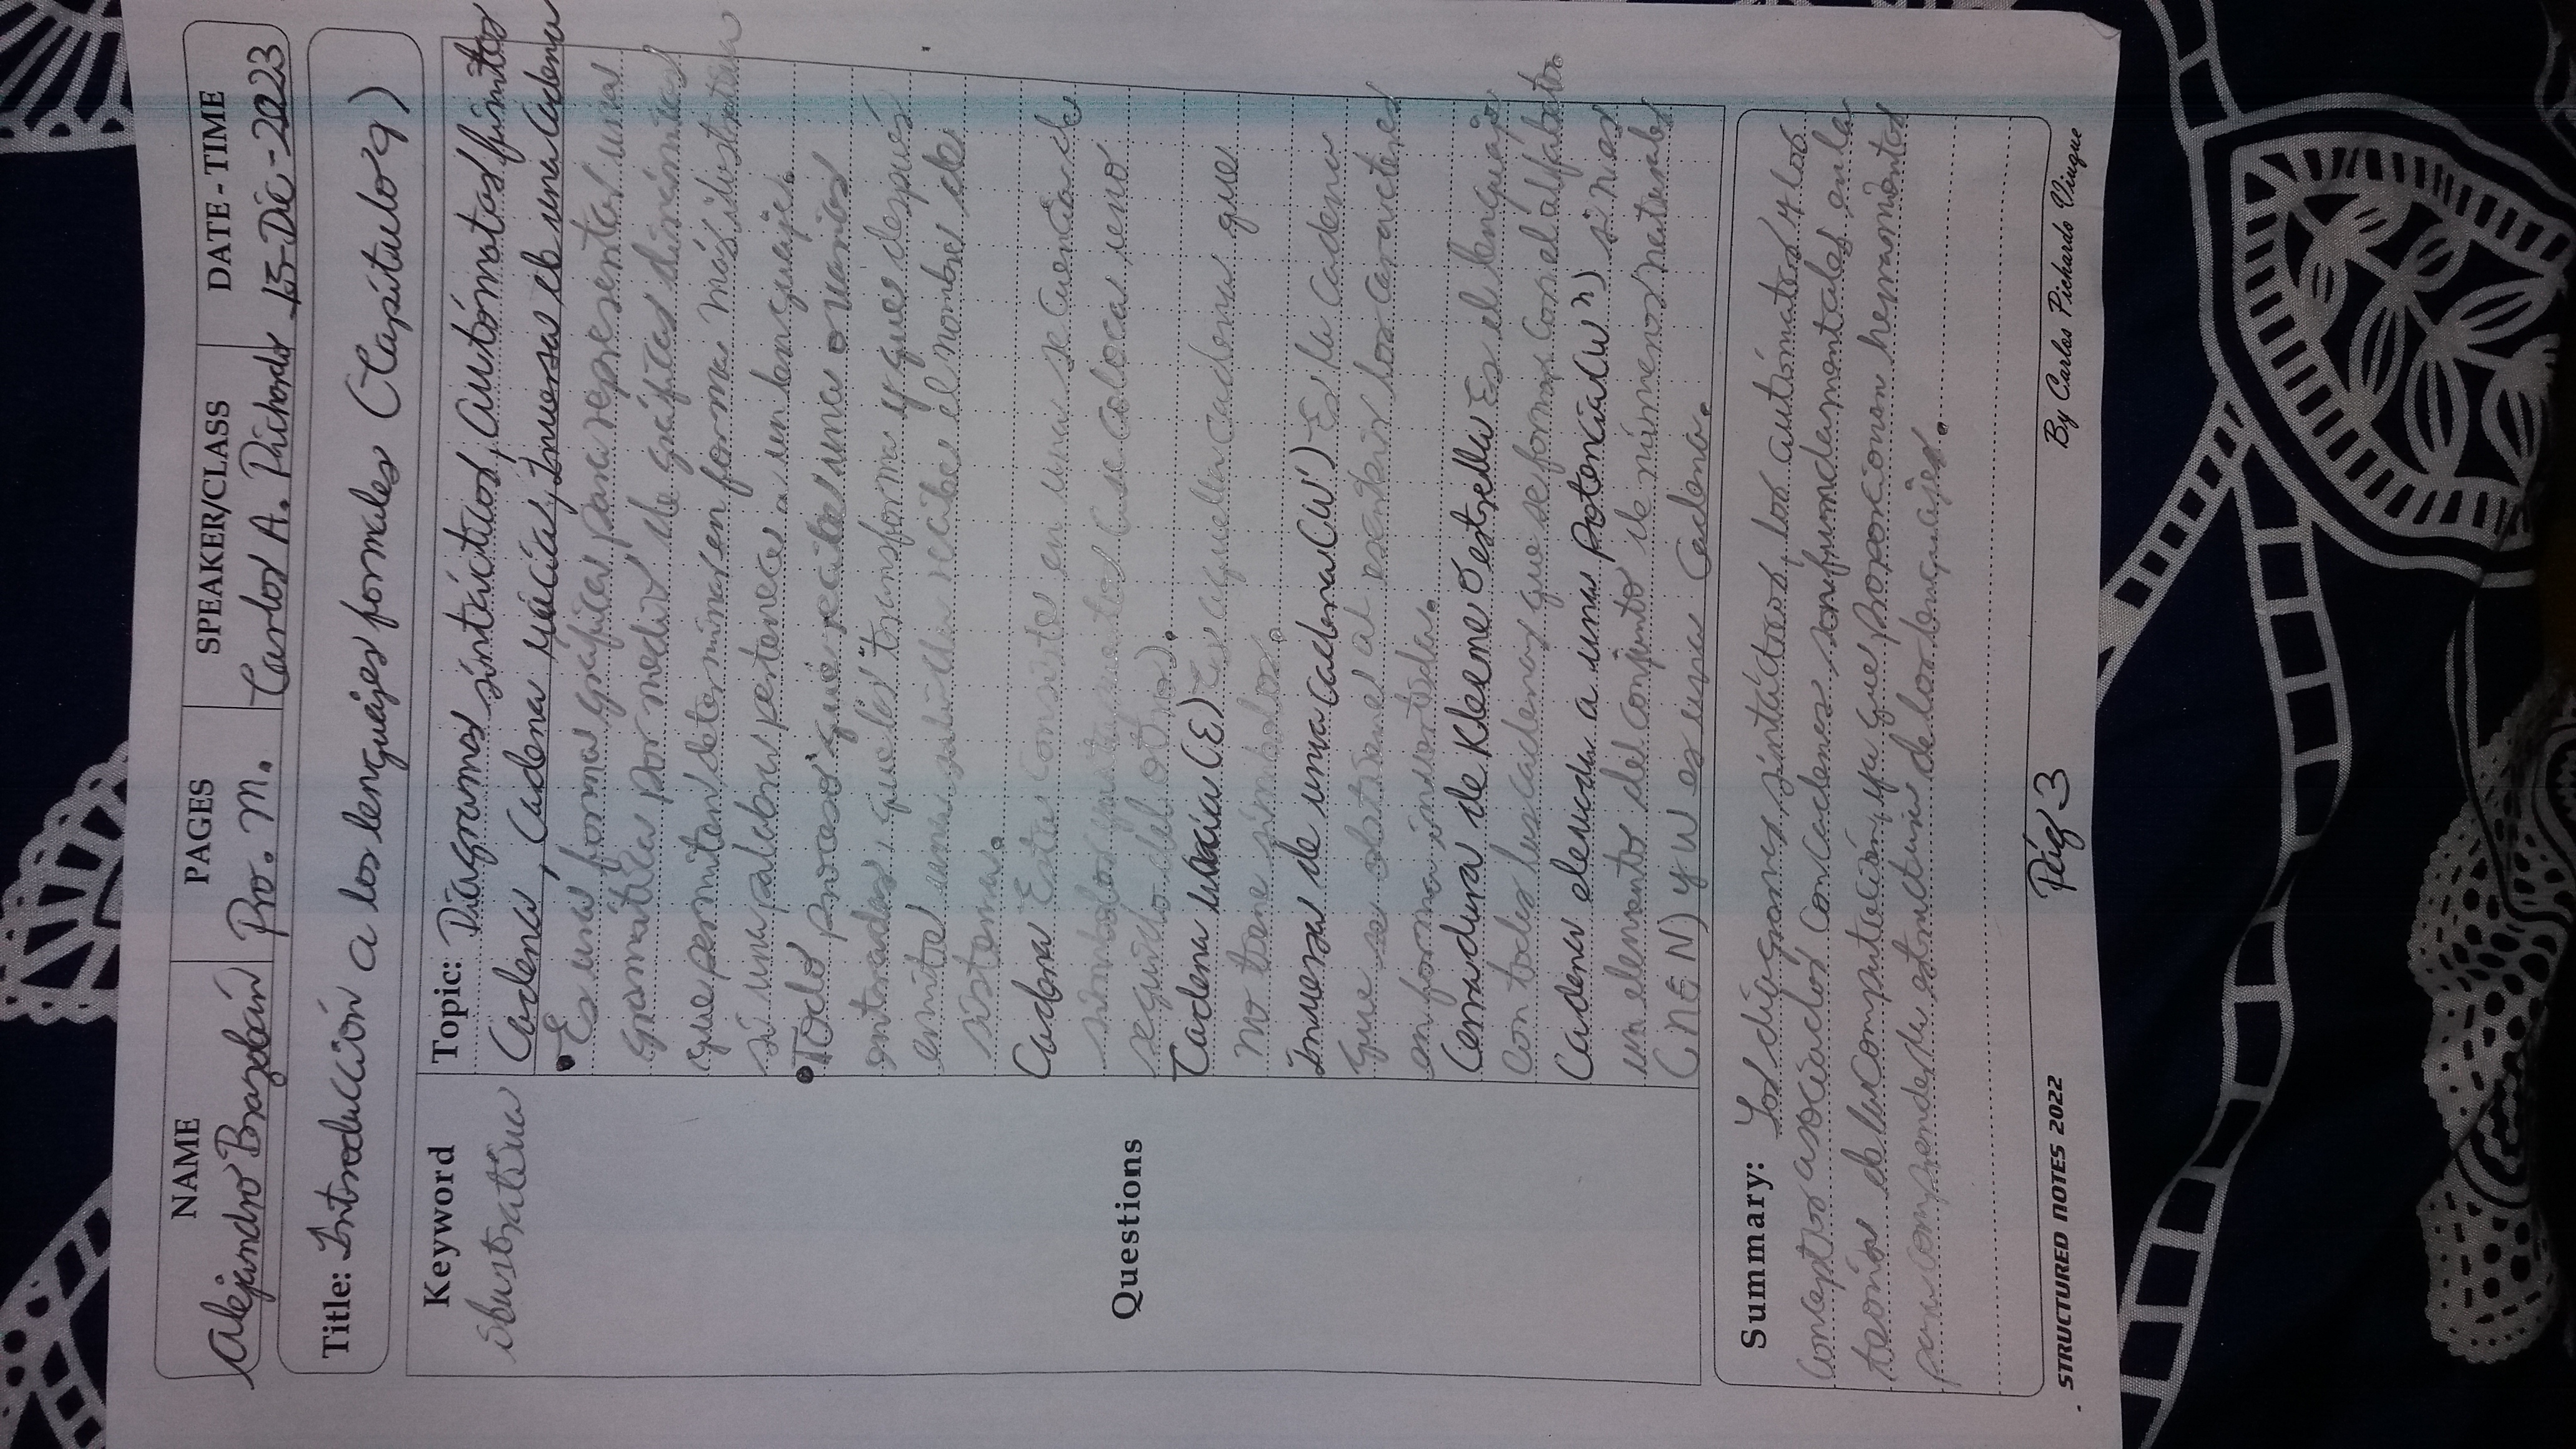 NAME PAGES SPEAKER/CLASS DATE - TIME
Alejandro Brazobán Pro. M. Carlos A. Pichardo 15-Dic-2023
Title: Introducción a los lenguajes formales (Capítulo 9)
Keyword
ilustrativa
Topic: Diagramas sintácticos, Autómatas finitos
Cadena, Cadena vácía, Inversa de una Cadena
•Es una forma gráfica para representar una
gramática por medio de gráficas dinámicas
que permiten determinar en forma más ilustrativa
si una palabra pertenece a un lenguaje.
•Todo proceso que recibe una o varias
entradas, que las transforma y que después
emite una salida recibe el nombre de
sistema.
Cadena Esta consiste en una secuencia de
símbolos (se coloca uno
seguido del otro).
Cadena vacía (ε) Es aquella cadena que
no tiene símbolos.
Inversa de una cadena (W') Es la cadena
que se obtiene al escribir los caracteres
en forma invertida.
Cerradura de Kleene o estrella Es el lenguaje
con todas las cadenas que se forman con el alfabeto.
Cadena elevada a una potencia (Wⁿ) si n es
un elemento del conjunto de números naturales
(n∈N) y W es una Cadena.
Questions
Summary: Los diagramas sintácticos, los autómatas y los
conceptos asociados con cadenas son fundamentales en la
teoría de la computación, ya que proporcionan herramientas
para comprender la estructura de los lenguajes.
STRUCTURED NOTES 2022 Pág 3 By Carlos Pichardo Viuque